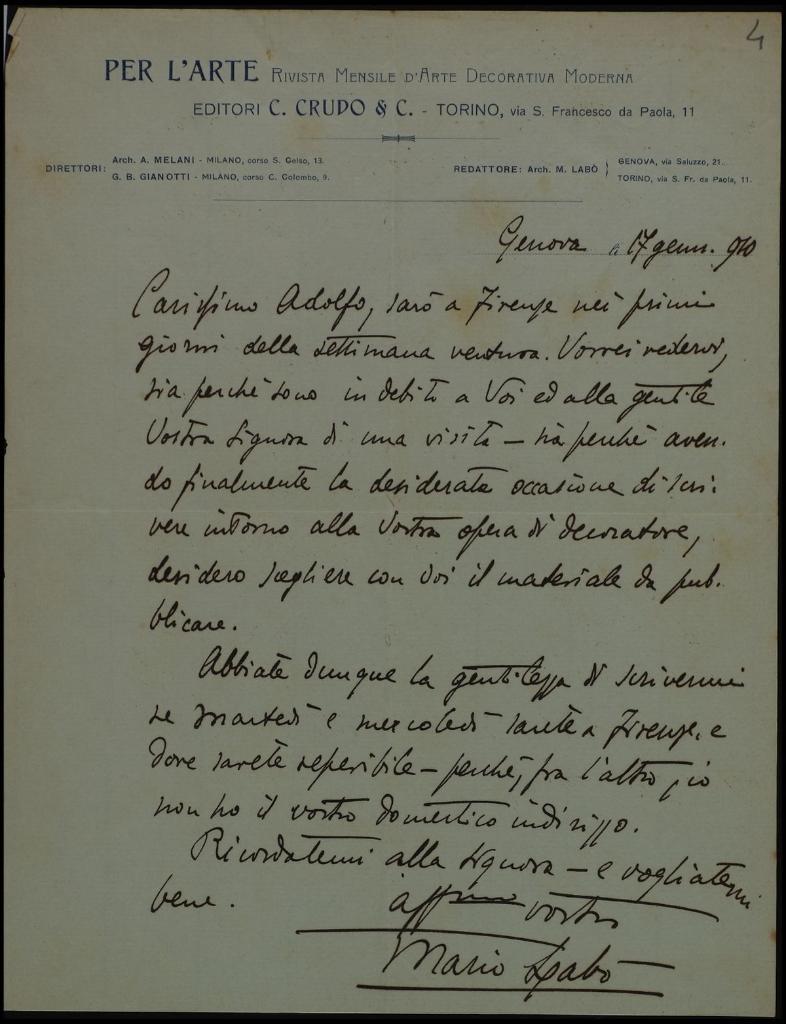 4
PER L'ARTE RIVISTA MENSILE D'ARTE DECORATIVA MODERNA
EDITORI C. CRUDO & C. - TORINO, via S. Francesco da Paola, 11
DIRETTORI: Arch. A. MELANI - MILANO, corso S. Gelso, 13.
G. B. GIANOTTI - MILANO, corso C. Colombo, 9.
REDATTORE: Arch. M. LABÒ
GENOVA, via Saluzzo, 21.
TORINO, via S. Fr. da Paola, 11.
Genova, 17 genn. 910
Carissimo Adolfo, sarò a Firenze nei primi
giorni della settimana ventura. Vorrei vedervi,
sia perchè sono in debito a Voi ed alla gentile
Vostra Signora di una visita — sia perchè aven-
do finalmente la desiderata occasione di scri-
vere intorno alla Vostra opera di decoratore,
desidero scegliere con Voi il materiale da pub-
blicare.
Abbiate dunque la gentilezza di scrivermi
se martedì e mercoledì sarete a Firenze, e
dove sarete reperibile — perchè, fra l'altro, io
non ho il vostro domestico indirizzo.
Ricordatemi alla Signora — e vogliatemi
bene.
affmo vostro
Mario Labò